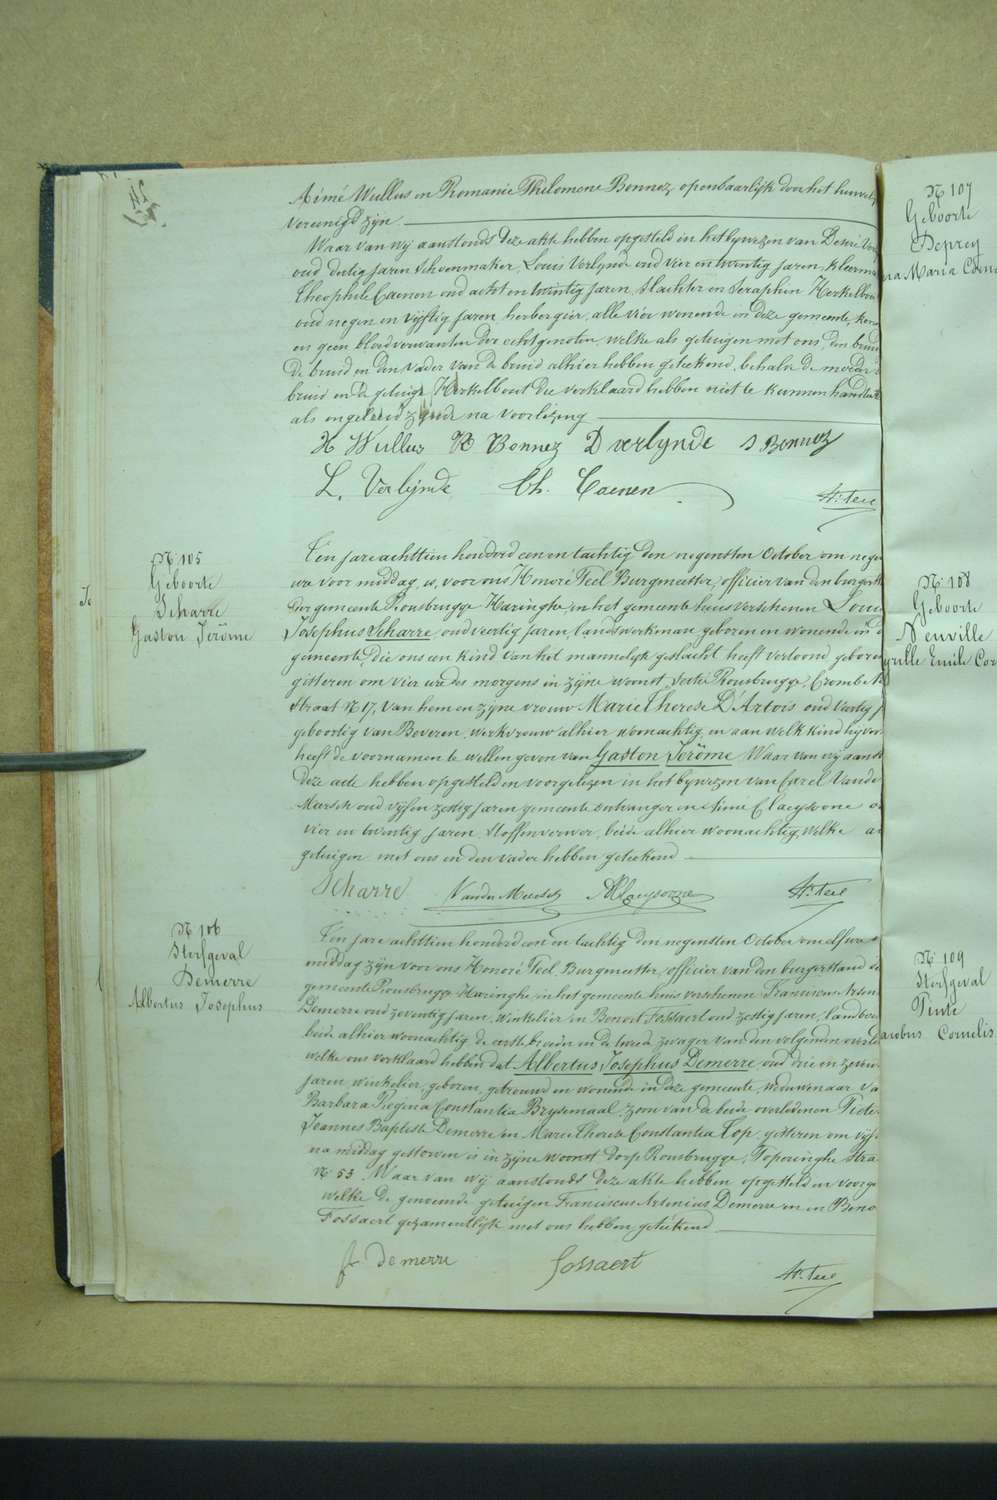 Aimé Wullus en Romanie Philomene Bonnez, openbaarlijk door het
vereenigd zijn
Waar van wij aanstonds deze akte hebben opgesteld in het bijwezen van Desiré
oud dertig jaren Schoenmaker, Louis Verlynde oud vier en twintig jaren,
Theophile Caenen oud acht en twintig jaren, Slachter en Seraphin
oud negen en vijftig jaren, herbergier, alle vier wonende in deze gemeente,
en geen bloedverwanten der echtgenoten, welke als getuigen met ons, den
de bruid en den vader van de bruid alhier hebben geteekend, behalve de
bruid en de getuige Herkelbout die verklaard hebben niet te kunnen
als ongeleerd zijnde na voorlezing
H Wullus R Bonnez D verlynde S Bonnez
L. Verlynde Th. Caenen
H. Teel
N. 105
Geboorte
Scharre
Gaston Jerôme
Ten jare achttien honderd een en tachtig den negensten October om
ure voor middag, is, voor ons Honoré Teel, Burgmeester, officier van den
der gemeente Rousbrugge Haringhe, in het gemeente huis verschenen Louis
Josephus Scharre, oud veertig jaren, landswerkman, geboren en wonende in
gemeente, die ons een kind van het mannelijk geslacht heeft vertoond, geboren
gisteren om vier ure des morgens in zijne woonst, sectie Rousbrugge, Crombe
Straat N 17, van hem en zijne vrouw Marie Therese D'Artois oud veertig
geboortig van Beveren, werkvrouw alhier woonachtig, en aan welk kind hij
heeft de voornamen te willen geven van Gaston Jerôme. Waar van wij
deze acte hebben opgesteld en voorgelezen in het bijwezen van Carel Vander
Mersch oud vijf en zestig jaren gemeente ontvanger en Aimé Claeysoone
vier en twintig jaren, Stoffenverwer, beide alhier woonachtig, welke
getuigen met ons en den vader hebben geteekend
Scharre Vander Meersch A Claeysoone H. Teel
N 106
Sterfgeval
Demerre
Albertus Josephus
Ten jare achttien honderd een en tachtig den negensten October om elf ure
middag zijn voor ons Honoré Teel, Burgmeester, officier van den burgerstand
gemeente Rousbrugge Haringhe, in het gemeente huis verschenen Franciscus Arsenius
Demerre oud zeventig jaren, winkelier en Benoit Fossaert oud zestig jaren,
beide alhier woonachtig de eerste broeder en de tweede zwager van den volgenden
welke ons verklaard hebben dat Albertus Josephus Demerre, oud drie en
jaren winkelier, geboren, getrouwd en wonende in deze gemeente, weuwenaar
Barbara Regina Constantia Brydenaal zoon van de beide overledenen
Joannes Baptiste Demerre en Marie Therese Constantia Top, gisteren om
na middag gestorven is in zijne woonst dorp Rousbrugge, Poperinghe
N 53. Waar van wij aanstonds deze akte hebben opgesteld en
welke de genoemde getuigen Franciscus Arsenius Demerre en en
Fossaert gezamentlijk met ons hebben geteekend
fr Demerre Fossaert H. Teel
N 107
Geboorte
Deprey
Maria
N. 108
Geboorte
Neuville
Emile
N. 109
Sterfgeval
Cornelis